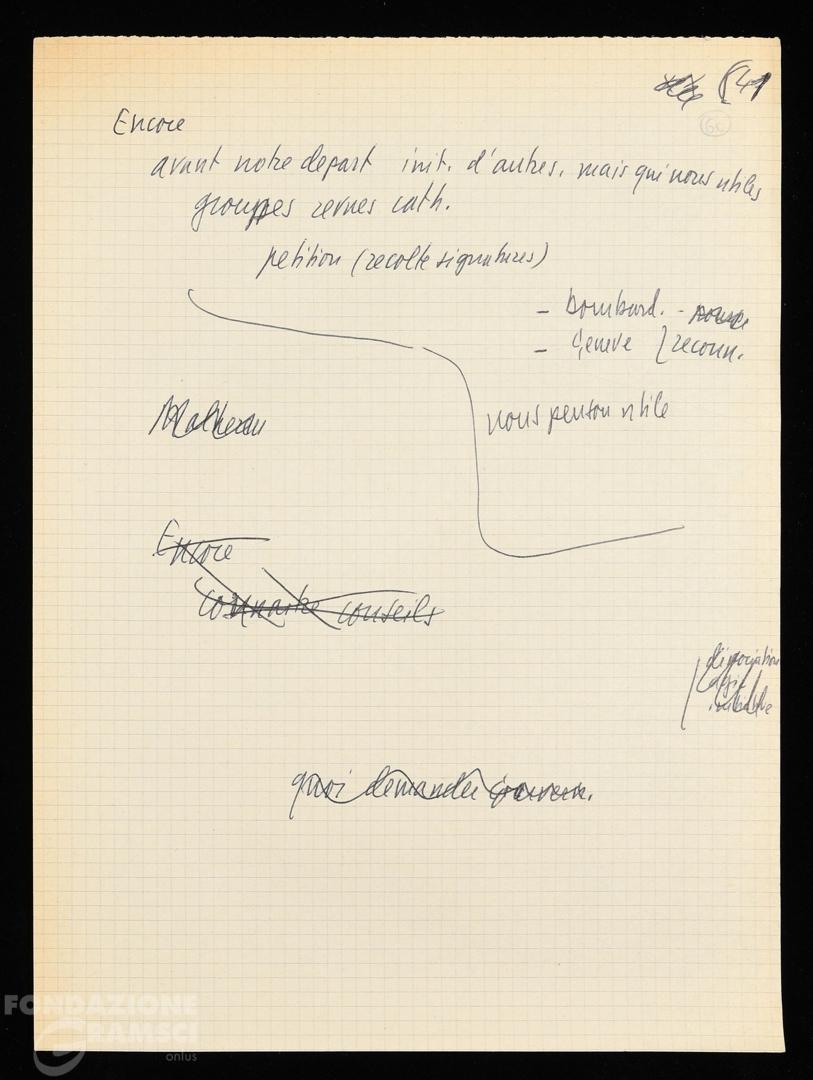 841
Encore
avant notre depart init. d'autres, mais qui nous utiles
groupes revues cath.
petition (recolte signatures)
- bombard. -
- Geneve } reconn.
nous penson utile
Encore
connaitre conseils
quoi demander gouvern.
FONDAZIONE
GRAMSCI
onlus